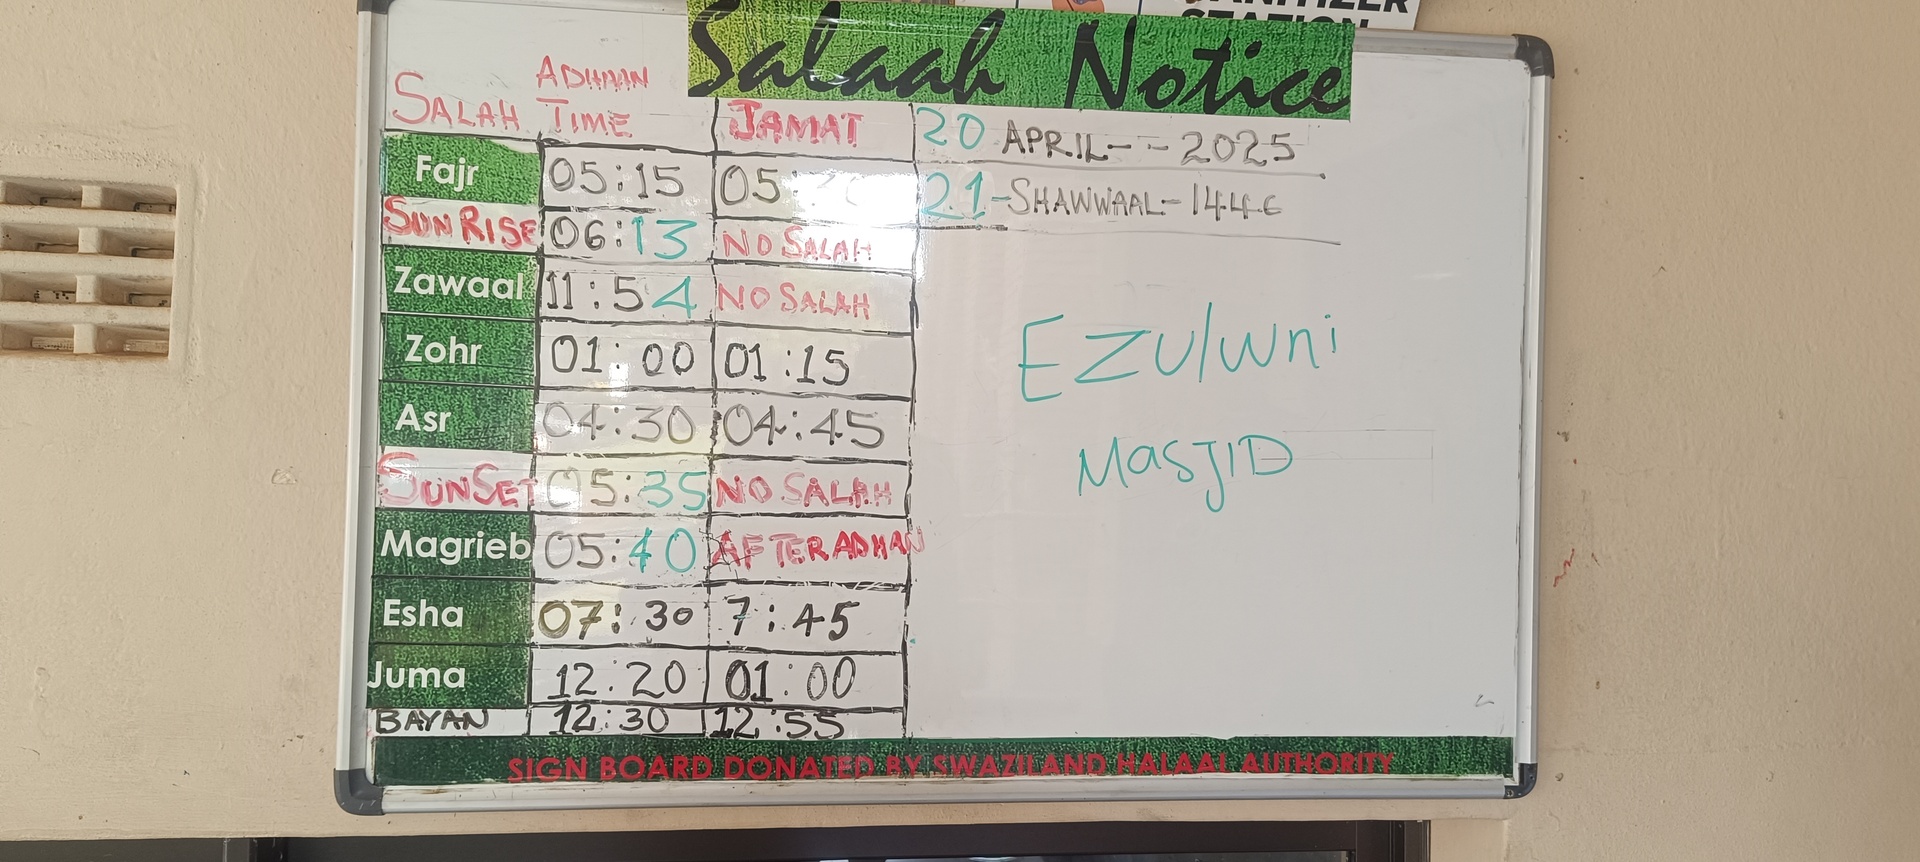 SANITIZER
STATION
Salaah Notice
SALAH ADHAAN TIME JAMAT
20 APRIL-- - 2025
21-SHAWWAAL-1446
Fajr 05:15 05:
SUNRISE 06:13 NO SALAH
Zawaal 11:54 NO SALAH
Zohr 01:00 01:15
Asr 04:30 04:45
SUNSET 05:35 NO SALAH
Magrieb 05:40 AFTER ADHAN
Esha 07:30 7:45
Juma 12:20 01:00
BAYAN 12:30 12:55
EZUlwni
MASJID
SIGN BOARD DONATED BY SWAZILAND HALAAL AUTHORITY